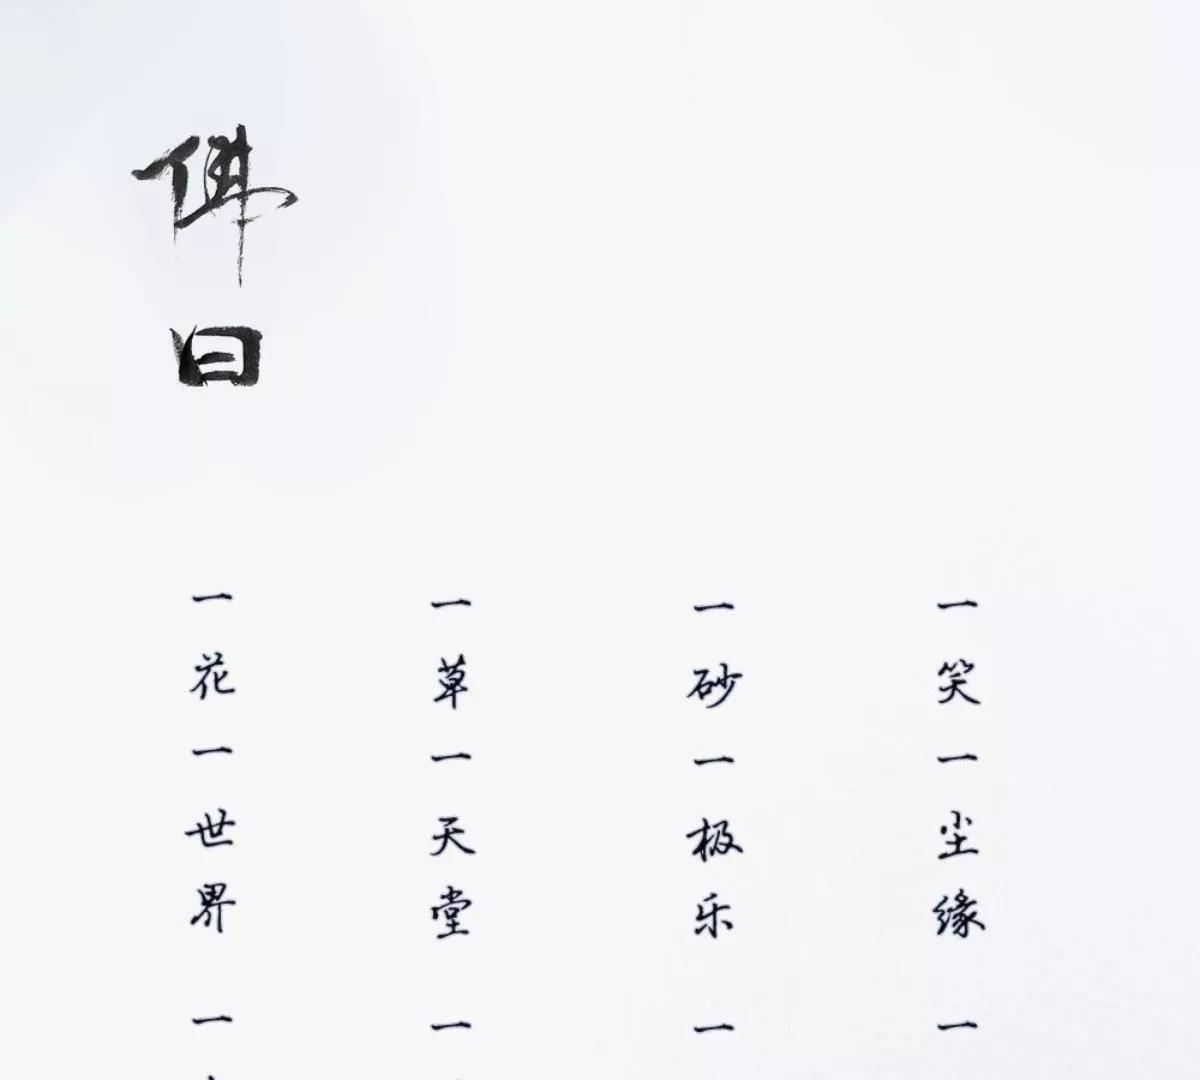 佛曰
一花一世界
一草一天堂
一砂一极乐
一笑一尘缘
一
一
一
一